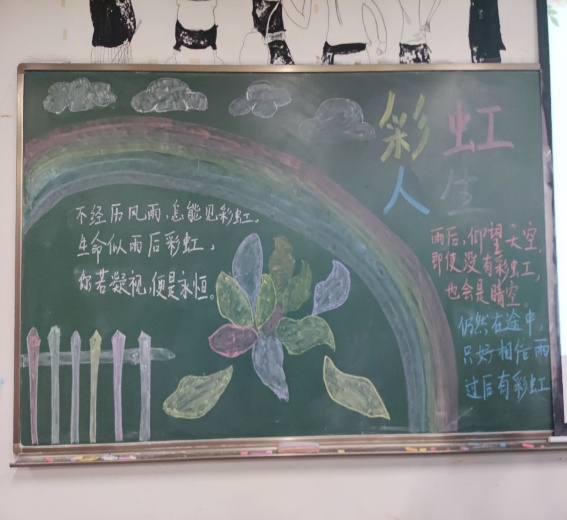 彩虹
人生
不经历风雨,怎能见彩虹。
生命似雨后彩虹,
你若凝视,便是永恒。
雨后,仰望天空,
即使没有彩虹,
也会是晴空。
仍然在途中,
只好相信雨
过后有彩虹